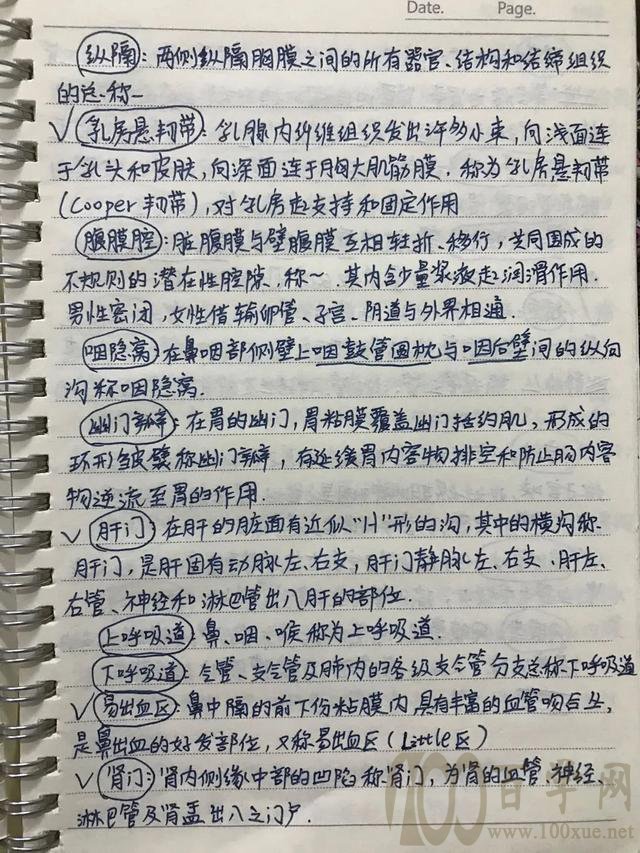 Date. Page.
纵隔：两侧纵隔胸膜之间的所有器官、结构和结缔组织
的总称
✓ 乳房悬韧带：乳腺内纤维组织发出许多小束，向浅面连
于乳头和皮肤，向深面连于胸大肌筋膜．称为乳房悬韧带
(Cooper韧带)，对乳房起支持和固定作用
腹膜腔：脏腹膜与壁腹膜互相转折、移行，共同围成的
不规则的潜在性腔隙，称～．其内含少量浆液起润滑作用．
男性密闭，女性借输卵管、子宫、阴道与外界相通．
咽隐窝：在鼻咽部侧壁上咽鼓管圆枕与咽后壁间的纵向
沟称咽隐窝．
幽门瓣：在胃的幽门，胃粘膜覆盖幽门括约肌，形成的
环形皱襞称幽门瓣，有延缓胃内容物排空和防止肠内容
物逆流至胃的作用．
✓ 肝门：在肝的脏面有近似"H"形的沟，其中的横沟称
肝门，是肝固有动脉左、右支，肝门静脉左、右支．肝左、
右管、神经和淋巴管出入肝的部位．
上呼吸道：鼻、咽、喉称为上呼吸道．
下呼吸道：气管、支气管及肺内的各级支气管分支总称下呼吸道
✓ 易出血区：鼻中隔的前下份粘膜内，具有丰富的血管吻合丛，
是鼻出血的好发部位，又称易出血区(Little区)
✓ 肾门：肾内侧缘中部的凹陷称肾门，为肾的血管、神经、
淋巴管及肾盂出入之门户．
100百学网
www.100xue.net